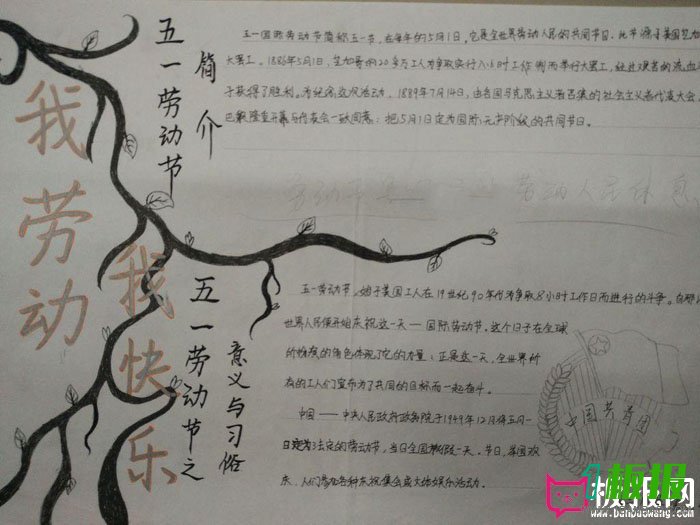 我劳动
我快乐
五一劳动节
简介
五一国际劳动节简称五一节,在每年的5月1日,它是全世界劳动人民的共同节日。此节源于美国芝加
大罢工。1886年5月1日,芝加哥的20多万工人为争取实行八小时工作制而举行大罢工,经过艰苦的流血
于获得了胜利。为纪念这次活动,1889年7月14日,由各国马克思主义者召集的社会主义者代表大会,
巴黎隆重开幕与代表会一致同意:把5月1日定为国际无产阶级的共同节日。
劳动人民休息
五一劳动节之
意义与习俗
五一劳动节,始于美国工人在19世纪90年代为争取8小时工作日而进行的斗争。自那
世界人民便开始庆祝这一天——国际劳动节。这个日子在全球
的角色体现了它的力量:正是这一天,全世界所
有的工人们宣布为了共同的目标而一起奋斗。
中国——中央人民政府政务院于1949年12月将五月一
日定为法定的劳动节,当日全国放假一天。节日,举国欢
乐,人们参加各种庆祝集会或文体娱乐活动。
中国共青团
板报网
www.banbaowang.com